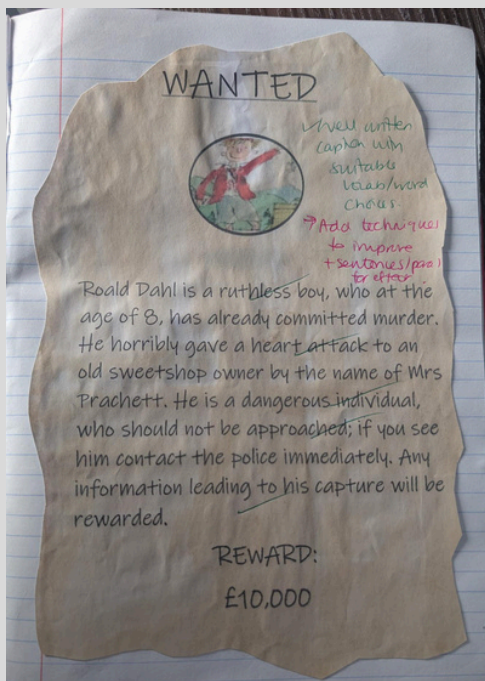 WANTED
✓Well written
caption with
suitable
vocab/word
choices.
→ Add techniques
to improve
+ sentences/para
for effect
Roald Dahl is a ruthless boy, who at the
age of 8, has already committed murder.
He horribly gave a heart attack to an
old sweetshop owner by the name of Mrs
Prachett. He is a dangerous individual,
who should not be approached; if you see
him contact the police immediately. Any
information leading to his capture will be
rewarded.
REWARD:
£10,000